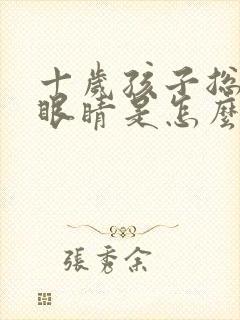 十歲孩子总
眼睛是怎麼
張秀余